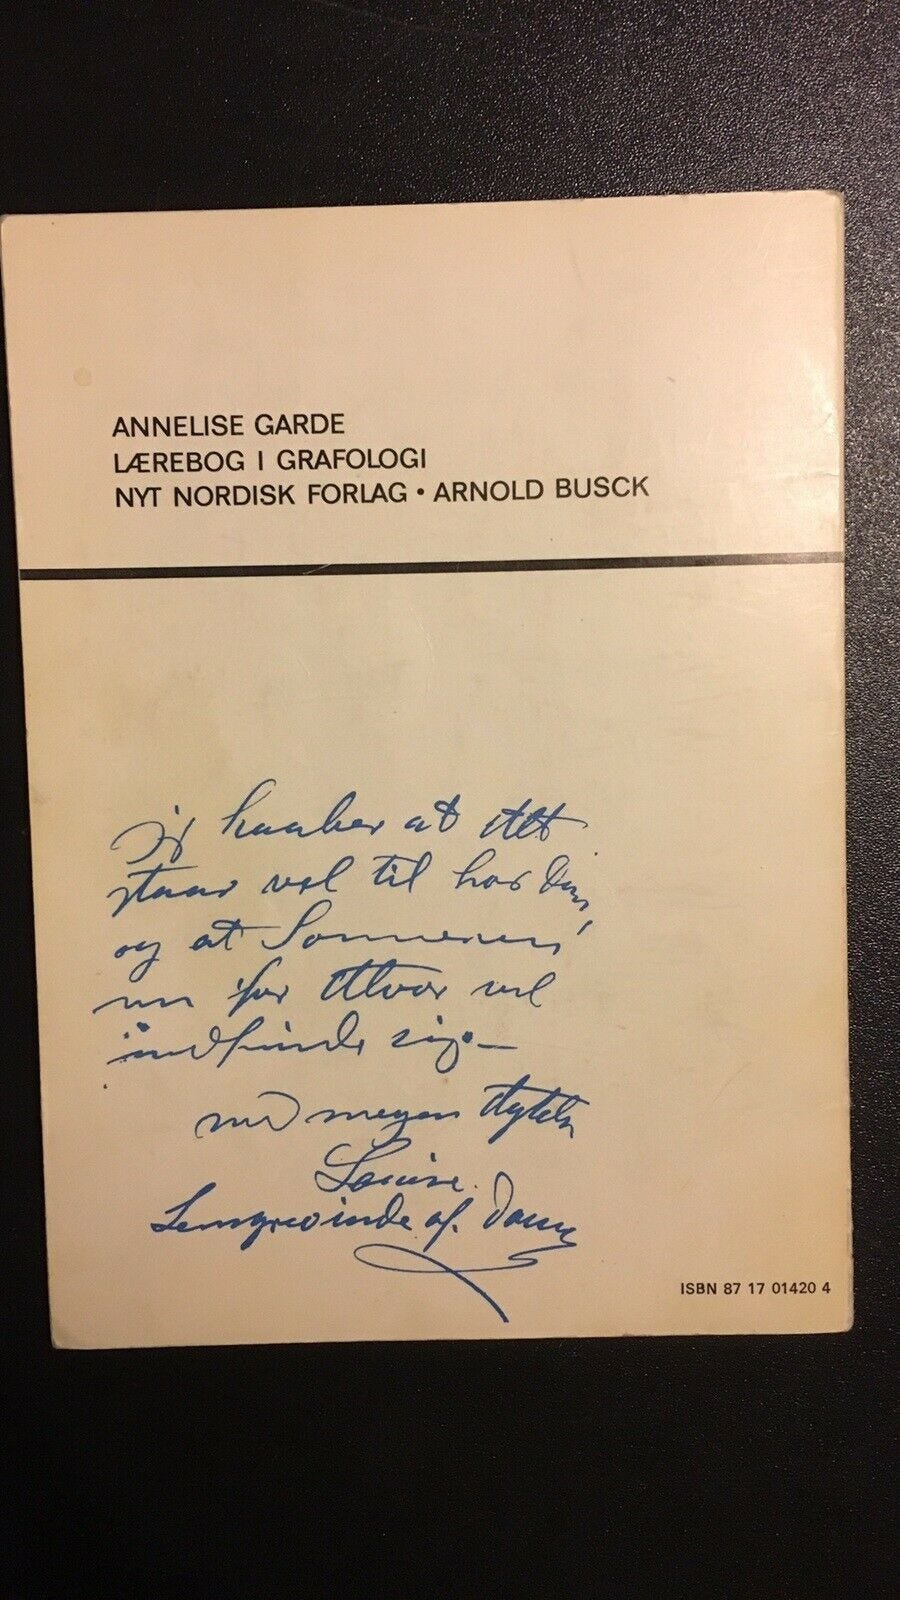 ANNELISE GARDE
LÆREBOG I GRAFOLOGI
NYT NORDISK FORLAG • ARNOLD BUSCK
Jeg haaber at Alt
staar vel til hos Dem,
og at Sommeren
nu for Alvor vil
indfinde sig –
med megen Agtelse
Louise
Lensgrevinde af
ISBN 87 17 01420 4